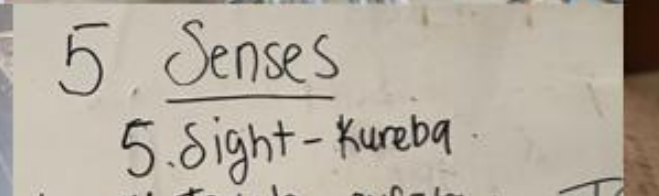 5 Senses
5. Sight - Kureba